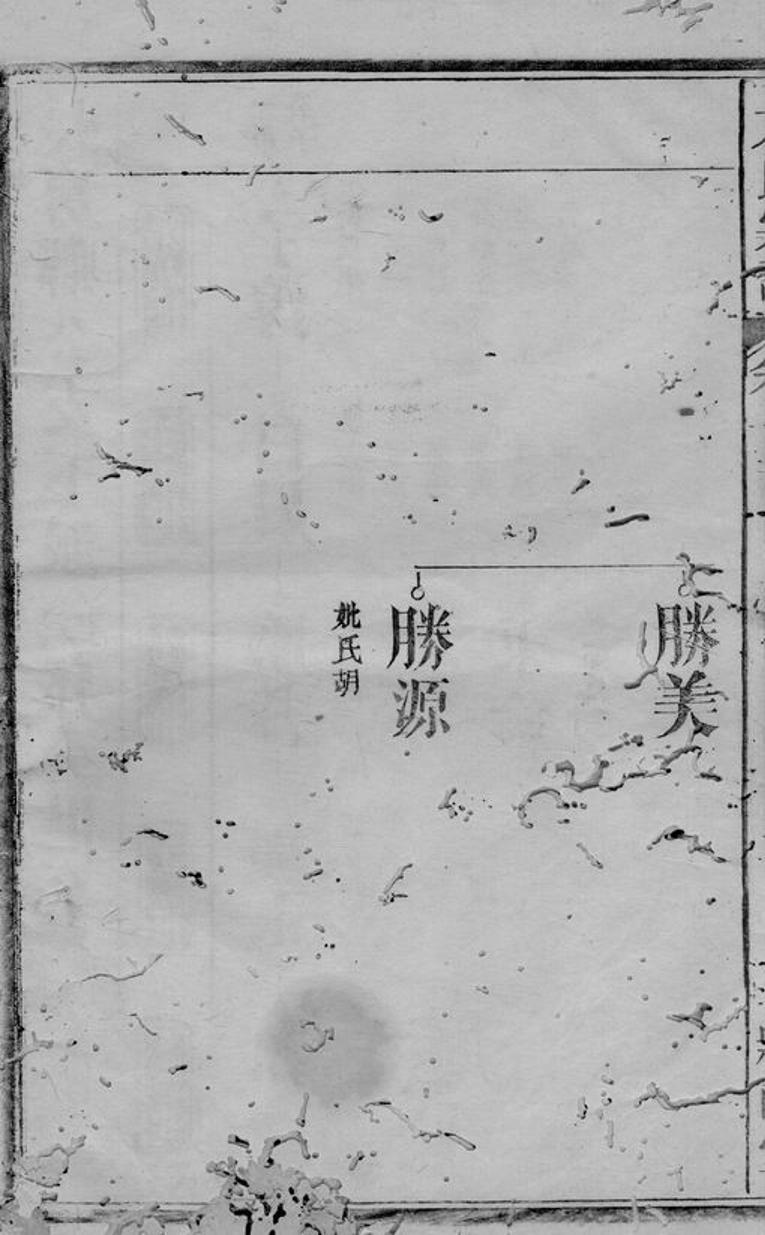 勝美
勝源
妣氏胡